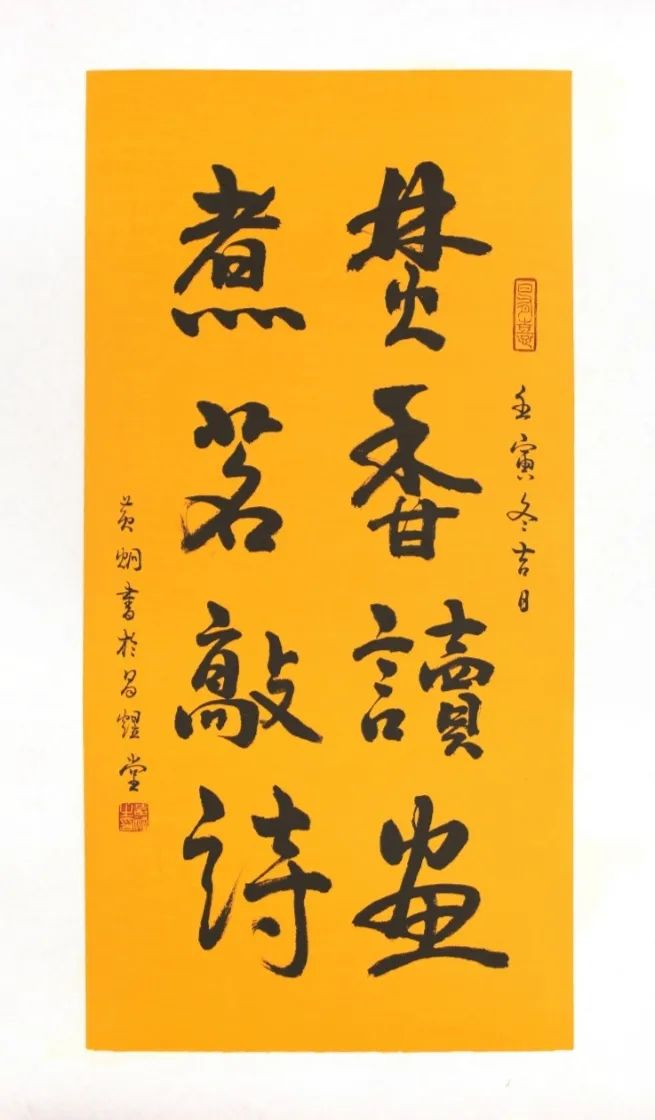 壬寅冬吉日
焚香讀畫
煮茗敲詩
黄炯書於昌煜堂